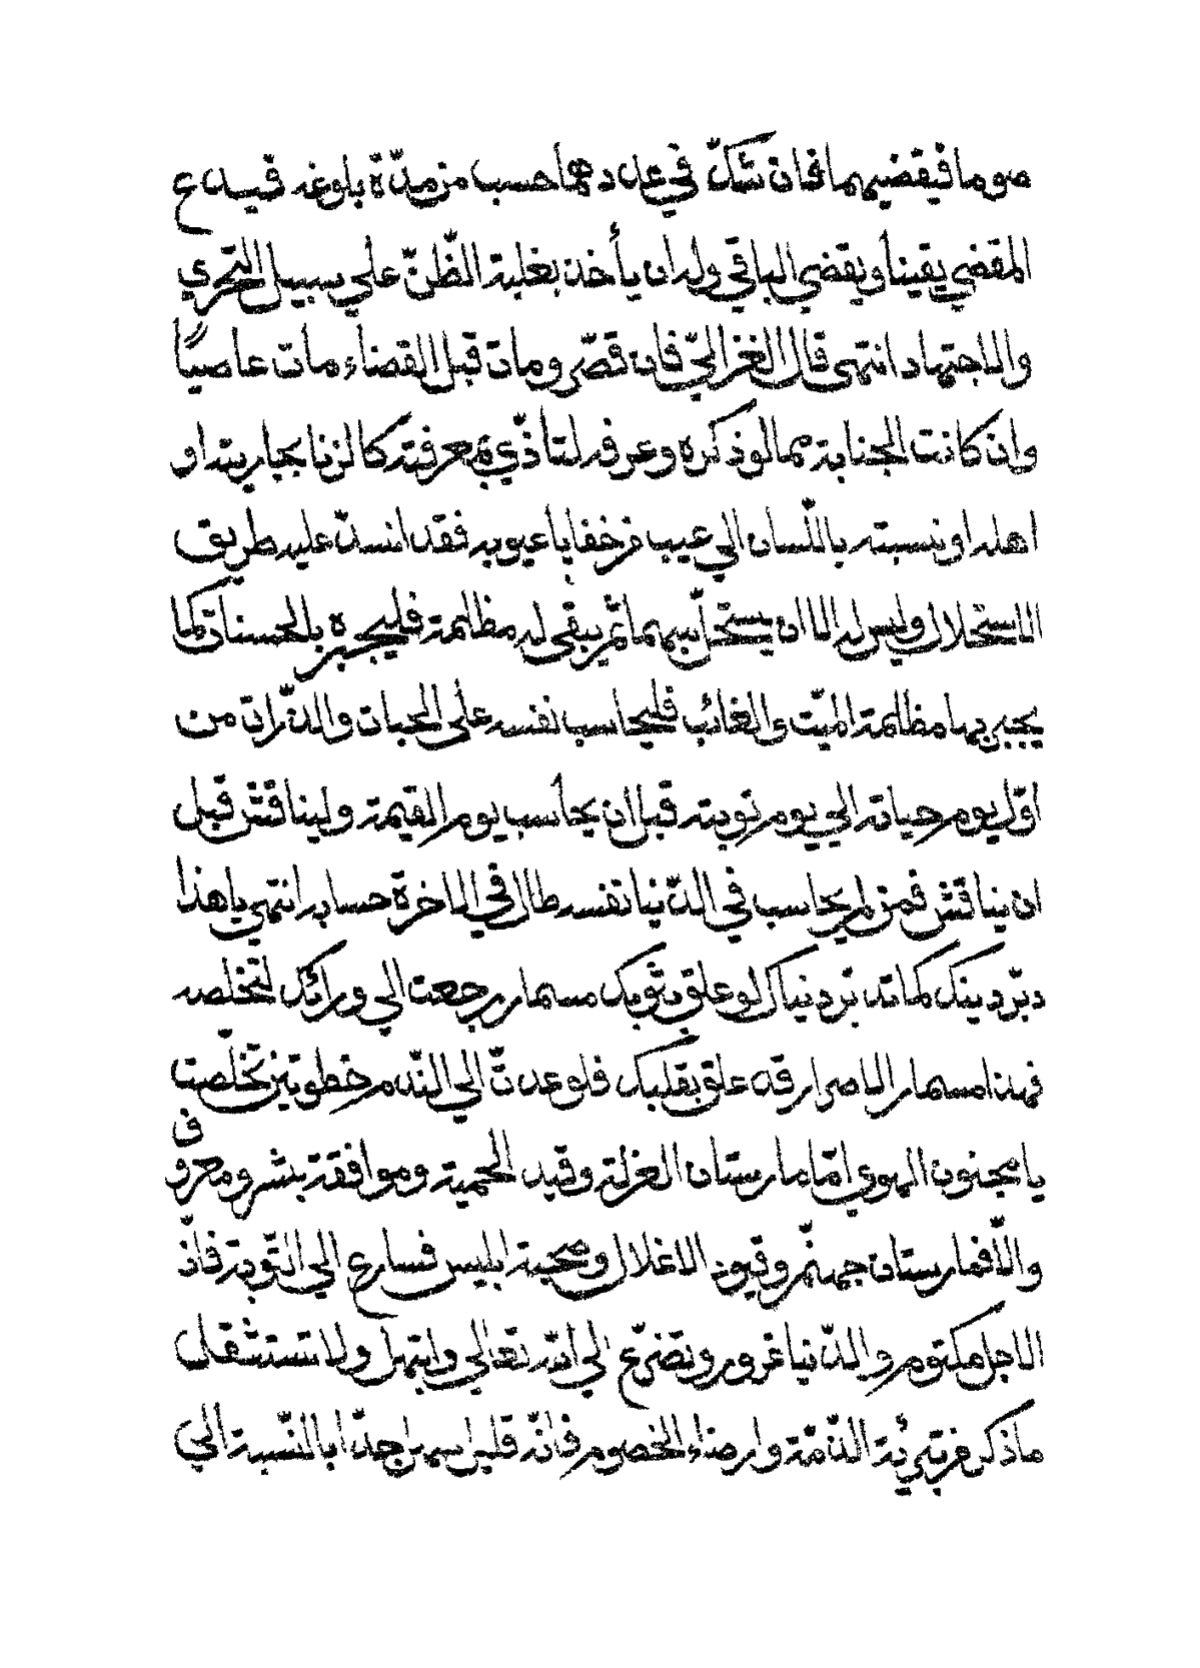 صوما فيقضيهما فان شكّ في عددهما حسب من مدّة بلوغه فيدع
المقضي يقينا ويقضي الباقي وله ان يأخذ بغلبة الظّنّ علي سبيل التحري
والاجتهاد انتهى قال الغزاليّ فان قصّر ومات قبل القضاء مات عاصيًا
وان كانت الجناية مما لو ذكره وعرفه لتأذّي بمعرفته كالزنا بجاريته او
اهله او نسبته باللّسان الي عيب من خفايا عيوبه فقد انسدّ عليه طريق
الاستحلال وليس له الا ان يستحلّ بينهما ثم يبقي له مظالمة فليجبره بالحسنات كما
يجبر بها مظالمة الميّت والغائب فليحاسب نفسه على الحبات والذّرات من
اوّل يوم حياته الي يوم توبته قبل ان يحاسب يوم القيمة وليناقش قبل
ان يناقش فمن لم يحاسب في الدّنيا نفسه طال في الاخرة حسابه انتهى يا هذا
دبّر دينك كما تدبّر دنياك لو علق بثوبك مسمار رجعت الي ورائك لتخلّصه
فهذا مسمار الاصرار قد علق بقلبك فلو عدتّ الي النّدم خطوتين تخلّصت
يا مجنون الهوي امّا مارستان العزلة وقيد الحمية وموافقة بشر ومعروف
والّا فمارستان جهنّم وقيود الاغلال وصحبة ابليس فسارع الي التّوبة فانّ
الاجل مكتوم والدّنيا غرور وتضرّع الي الله تعالي وابتهل ولا تستثقل
ما ذكر من تبرئة الذّمّة وارضاء الخصوم فانّه قليل سهل جدّا بالنّسبة الي